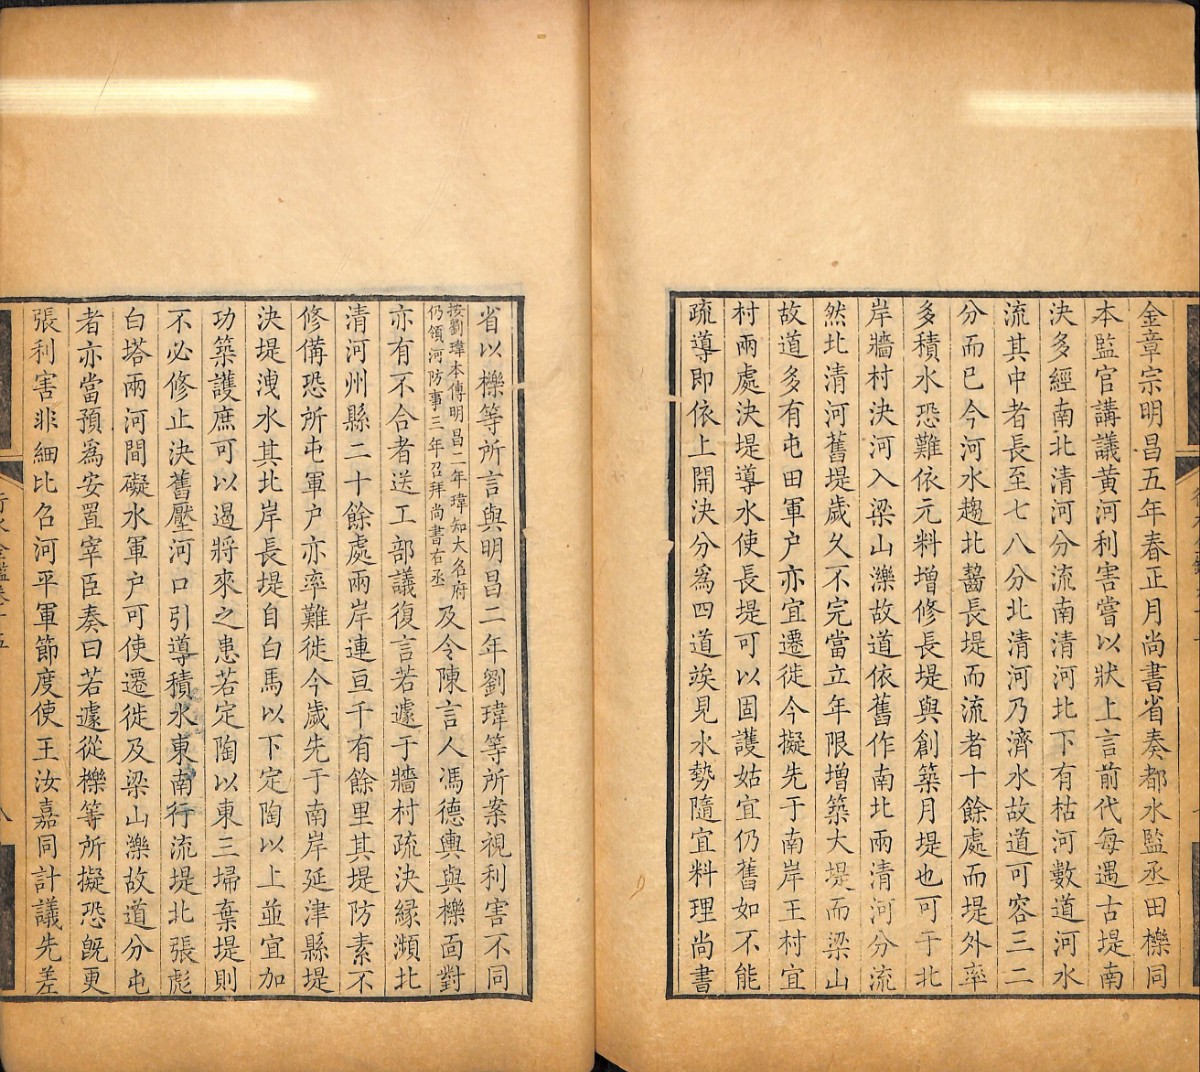 金章宗明昌五年春正月尚書省奏都水監丞田櫟同
本監官講議黃河利害嘗以狀上言前代每遇古堤南
決多經南北清河分流南清河北下有枯河數道河水
流其中者長至七八分北清河乃濟水故道可容三二
分而已今河水趨北齧長堤而流者十餘處而堤外率
多積水恐難依元料增修長堤與創築月堤也可于北
岸牆村決河入梁山濼故道依舊作南北兩清河分流
然北清河舊堤歲久不完當立年限增築大堤而梁山
故道多有屯田軍户亦宜遷徙今擬先于南岸王村宜
村兩處決堤導水使長堤可以固護姑宜仍舊如不能
疏導即依上開決分為四道竢見水勢隨宜料理尚書
省以櫟等所言與明昌二年劉瑋等所案視利害不同
按劉瑋本傳明昌二年瑋知大名府
仍領河防事三年召拜尚書右丞
及令陳言人馮德輿與櫟面對
亦有不合者送工部議復言若遽于牆村疏決緣瀕北
清河州縣二十餘處兩岸連亘千有餘里其堤防素不
修備恐所屯軍户亦率難徙今歲先于南岸延津縣堤
決堤洩水其北岸長堤自白馬以下定陶以上並宜加
功築護庶可以遏將來之患若定陶以東三埽棄堤則
不必修止決舊壓河口引導積水東南行流堤北張彪
白塔兩河間礙水軍户可使遷徙及梁山濼故道分屯
者亦當預為安置宰臣奏曰若遽從櫟等所擬恐既更
張利害非細比召河平軍節度使王汝嘉同計議先差